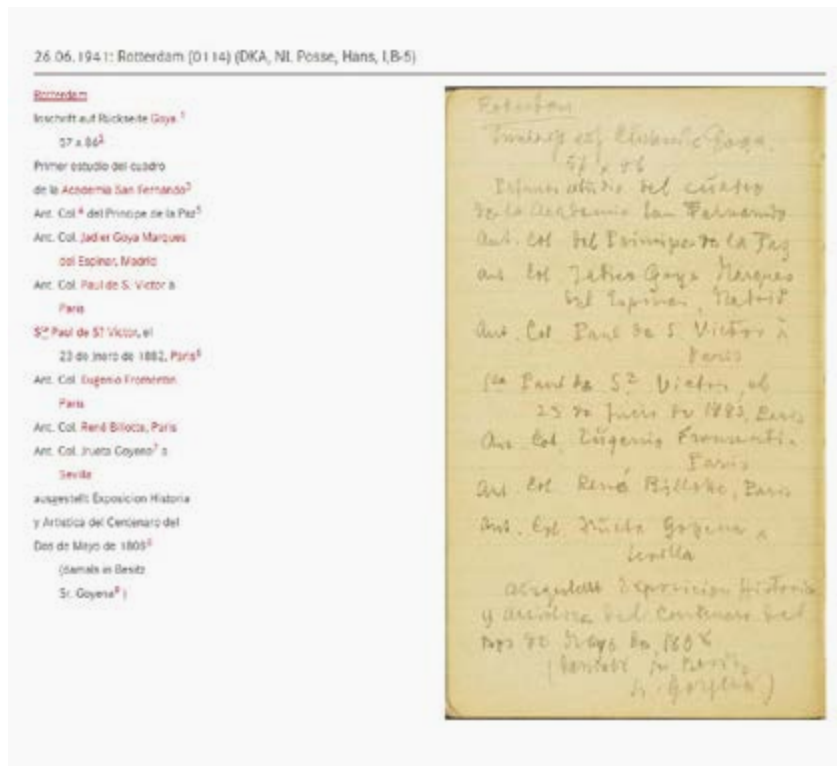 26.06.1941: Rotterdam (0114) (DKA, NL Posse, Hans, I,B-5)
Rotterdam
Inschrift auf Rückseite Goya. 1
57 x 86 2
Primer estudio del cuadro
de la Academia San Fernando 3
Ant. Col 4 del Principe de la Paz 5
Anc. Col. Javier Goya Marques
del Espinar, Madrid
Anc. Col. Paul de S. Victor a
Paris
Sta Paul de ST Victor, el
23 de Jnero de 1882, Paris 6
Anc. Col. Eugenio Fromentin
Paris
Anc. Col. René Billotte, Paris
Ant. Col. Jrueta Goyena 7 a
Sevilla
ausgestellt Exposicion Historia
y Artistica del Centenaro del
Dos de Mayo de 1808 8
(damals in Besitz
Sr. Goyena 9 )
57 x 86
del cuadro
de la Academia San Fernando
Ant. Col del Principe de la Paz
Ant. Col Goya Marques
del Espinar, Madrid
Ant. Col Paul de S. Victor a
Paris
Paul de ST Victor, el
de 1882, Paris
Ant. Col. Eugenio Fromentin
Paris
Ant. Col René Billotte, Paris
Ant. Col. Goyena a
Sevilla
Exposicion Historia
y Artistica del Centenaro del
Dos de Mayo de 1808